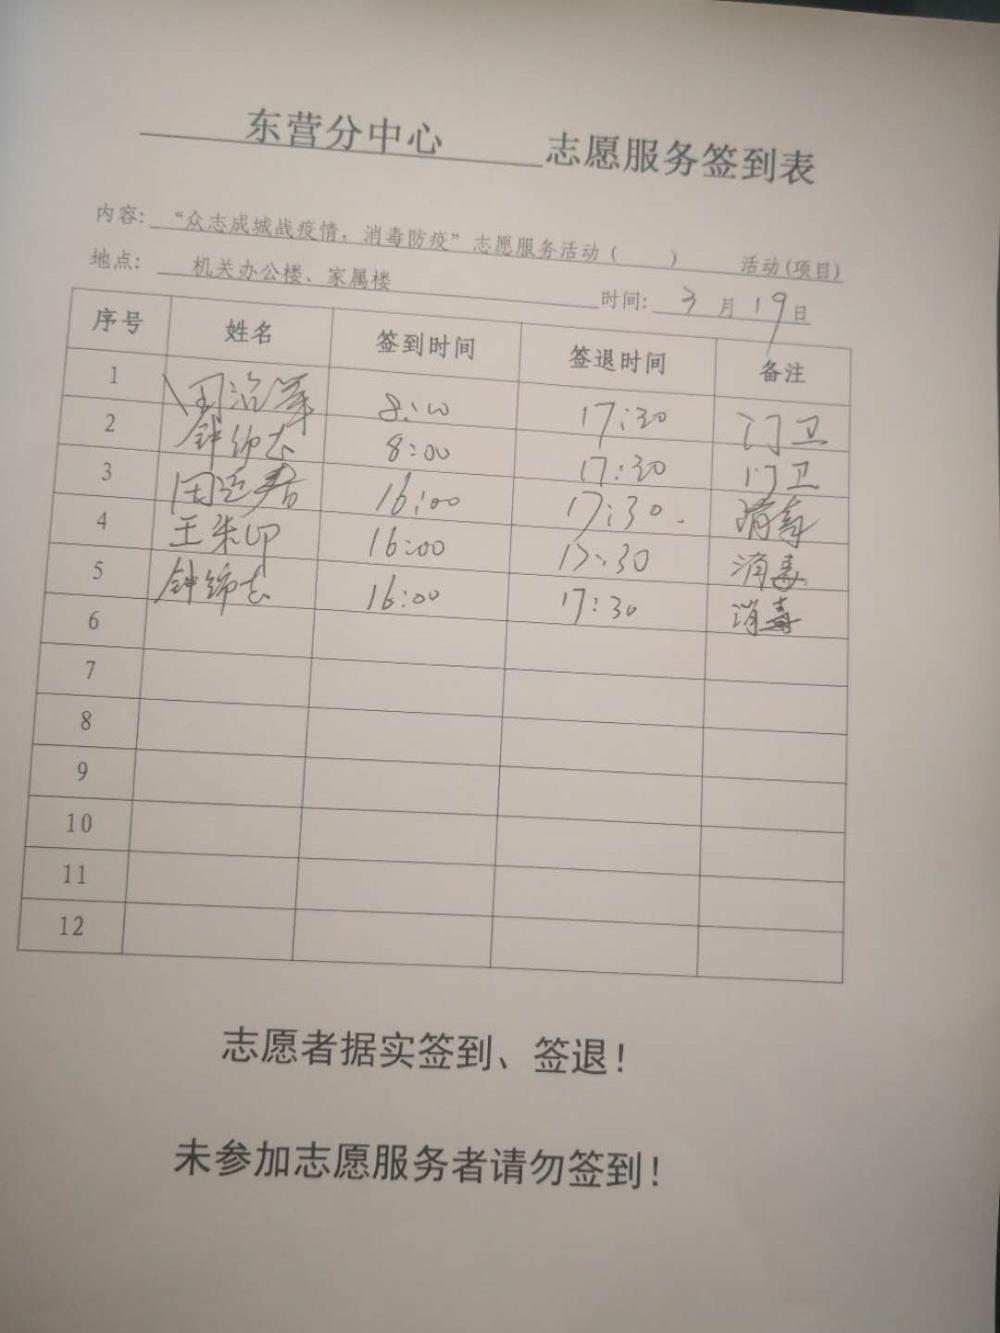 东营分中心 志愿服务签到表
内容: “众志成城战疫情，消毒防疫”志愿服务活动（ ） 活动(项目)
地点: 机关办公楼、家属楼 时间: 3月19日
序号 姓名 签到时间 签退时间 备注
1 8:00 17:30 门卫
2 8:00 17:30 门卫
3 16:00 17:30. 消毒
4 王朱印 16:00 17:30 消毒
5 16:00 17:30 消毒
6
7
8
9
10
11
12
志愿者据实签到、签退！
未参加志愿服务者请勿签到！